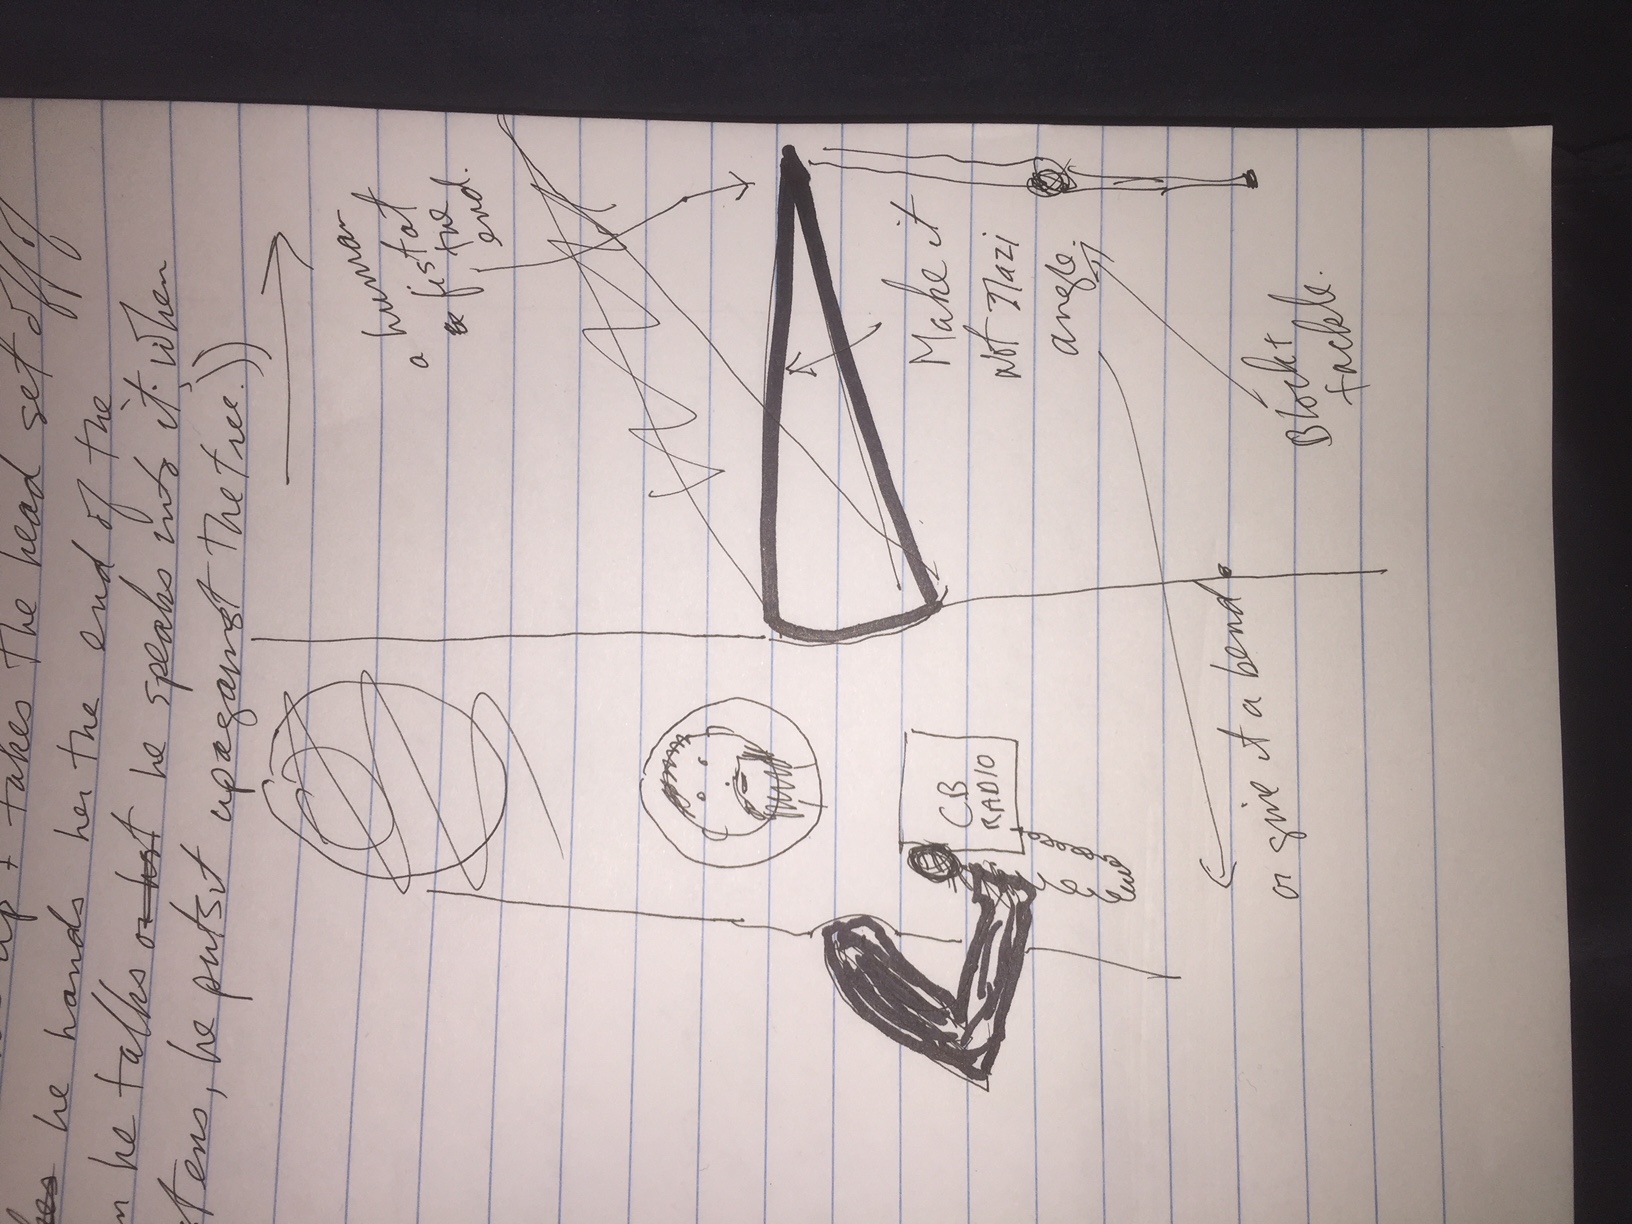 up + takes the head set off of
he hands her the end of the
he talks he speaks into it, when
he puts it up against the tree.))
a human
fist at
the
end.
CB
RADIO
Make it
not Nazi
angle.
or give it a bend.
Block +
tackle.